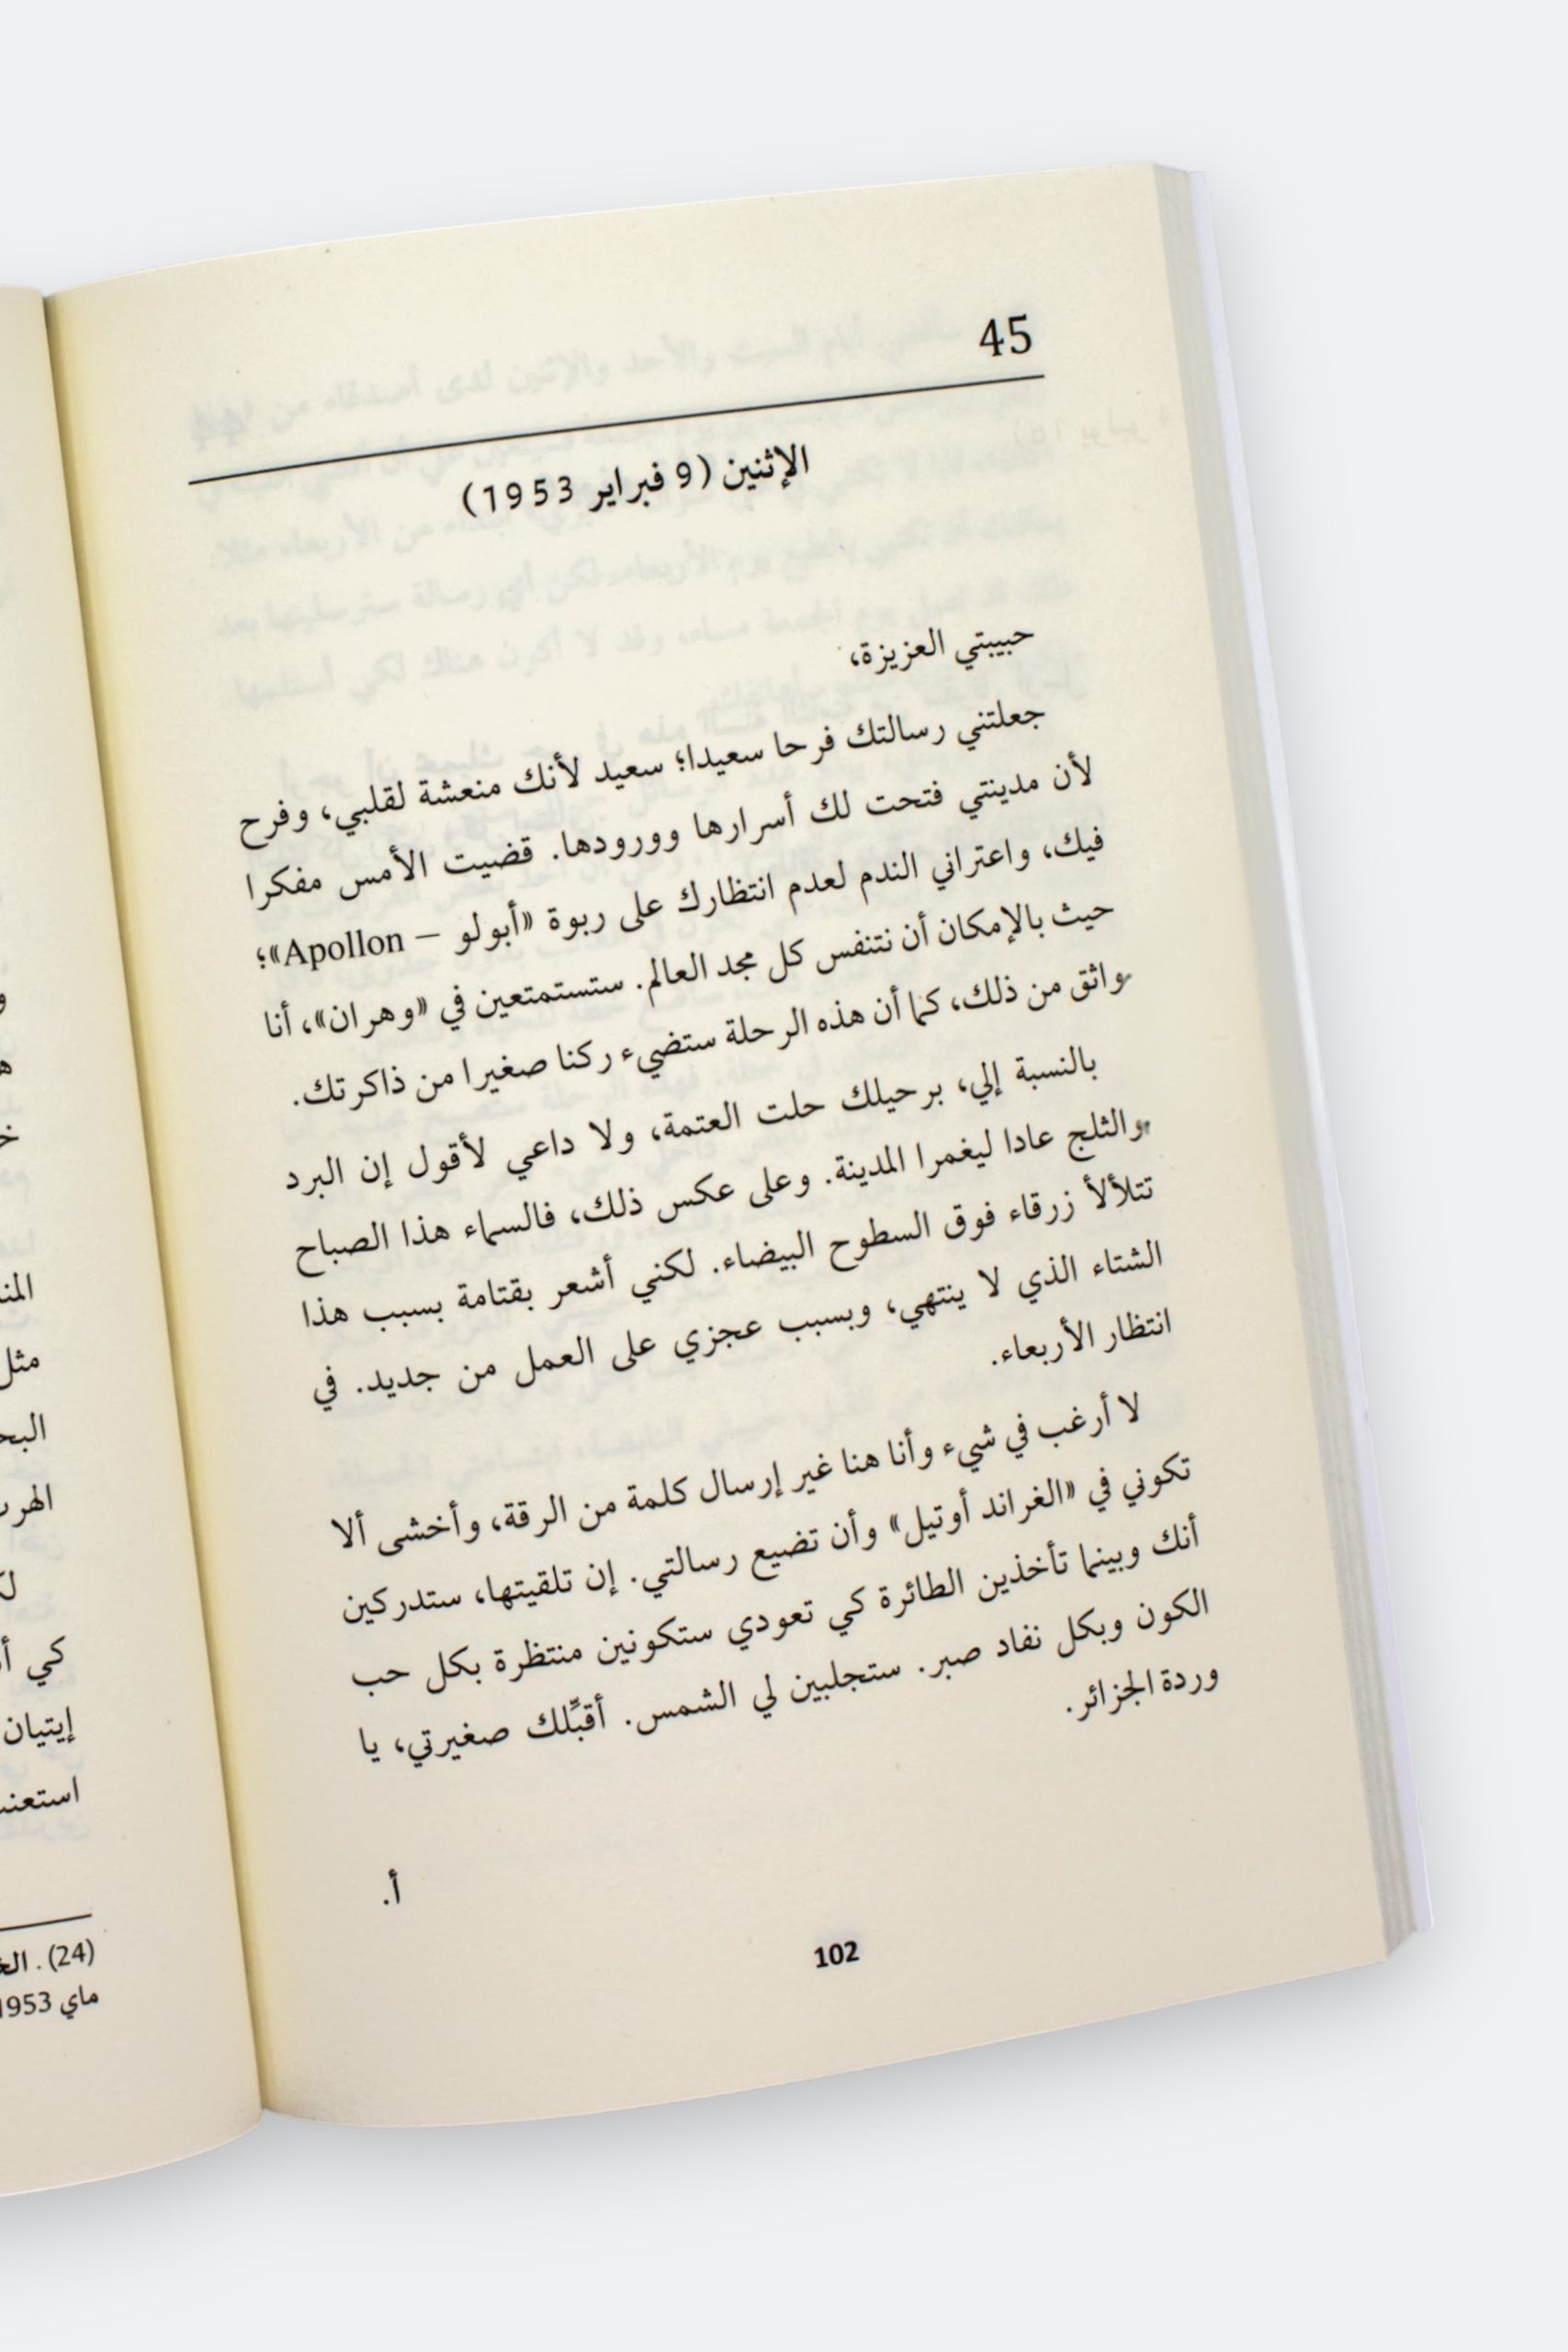 45
الإثنين (9 فبراير 1953)
حبيبتي العزيزة،
جعلتني رسالتك فرحا سعيدا؛ سعيد لأنك منعشة لقلبي، وفرح
لأن مدينتي فتحت لك أسرارها وورودها. قضيت الأمس مفكرا
فيك، واعتراني الندم لعدم انتظارك على ربوة «أبولو – Apollon»؛
حيث بالإمكان أن نتنفس كل مجد العالم. ستستمتعين في «وهران»، أنا
واثق من ذلك، كما أن هذه الرحلة ستضيء ركنا صغيرا من ذاكرتك.
بالنسبة إلي، برحيلك حلت العتمة، ولا داعي لأقول إن البرد
والثلج عادا ليغمرا المدينة. وعلى عكس ذلك، فالسماء هذا الصباح
تتلألأ زرقاء فوق السطوح البيضاء. لكني أشعر بقتامة بسبب هذا
الشتاء الذي لا ينتهي، وبسبب عجزي على العمل من جديد. في
انتظار الأربعاء.
لا أرغب في شيء وأنا هنا غير إرسال كلمة من الرقة، وأخشى ألا
تكوني في «الغراند أوتيل» وأن تضيع رسالتي. إن تلقيتها، ستدركين
أنك وبينما تأخذين الطائرة كي تعودي ستكونين منتظرة بكل حب
الكون وبكل نفاد صبر. ستجلبين لي الشمس. أقبِّلك صغيرتي، يا
وردة الجزائر.
أ.
102
مثل
كي
إيتيان
(24).
ماي 1953